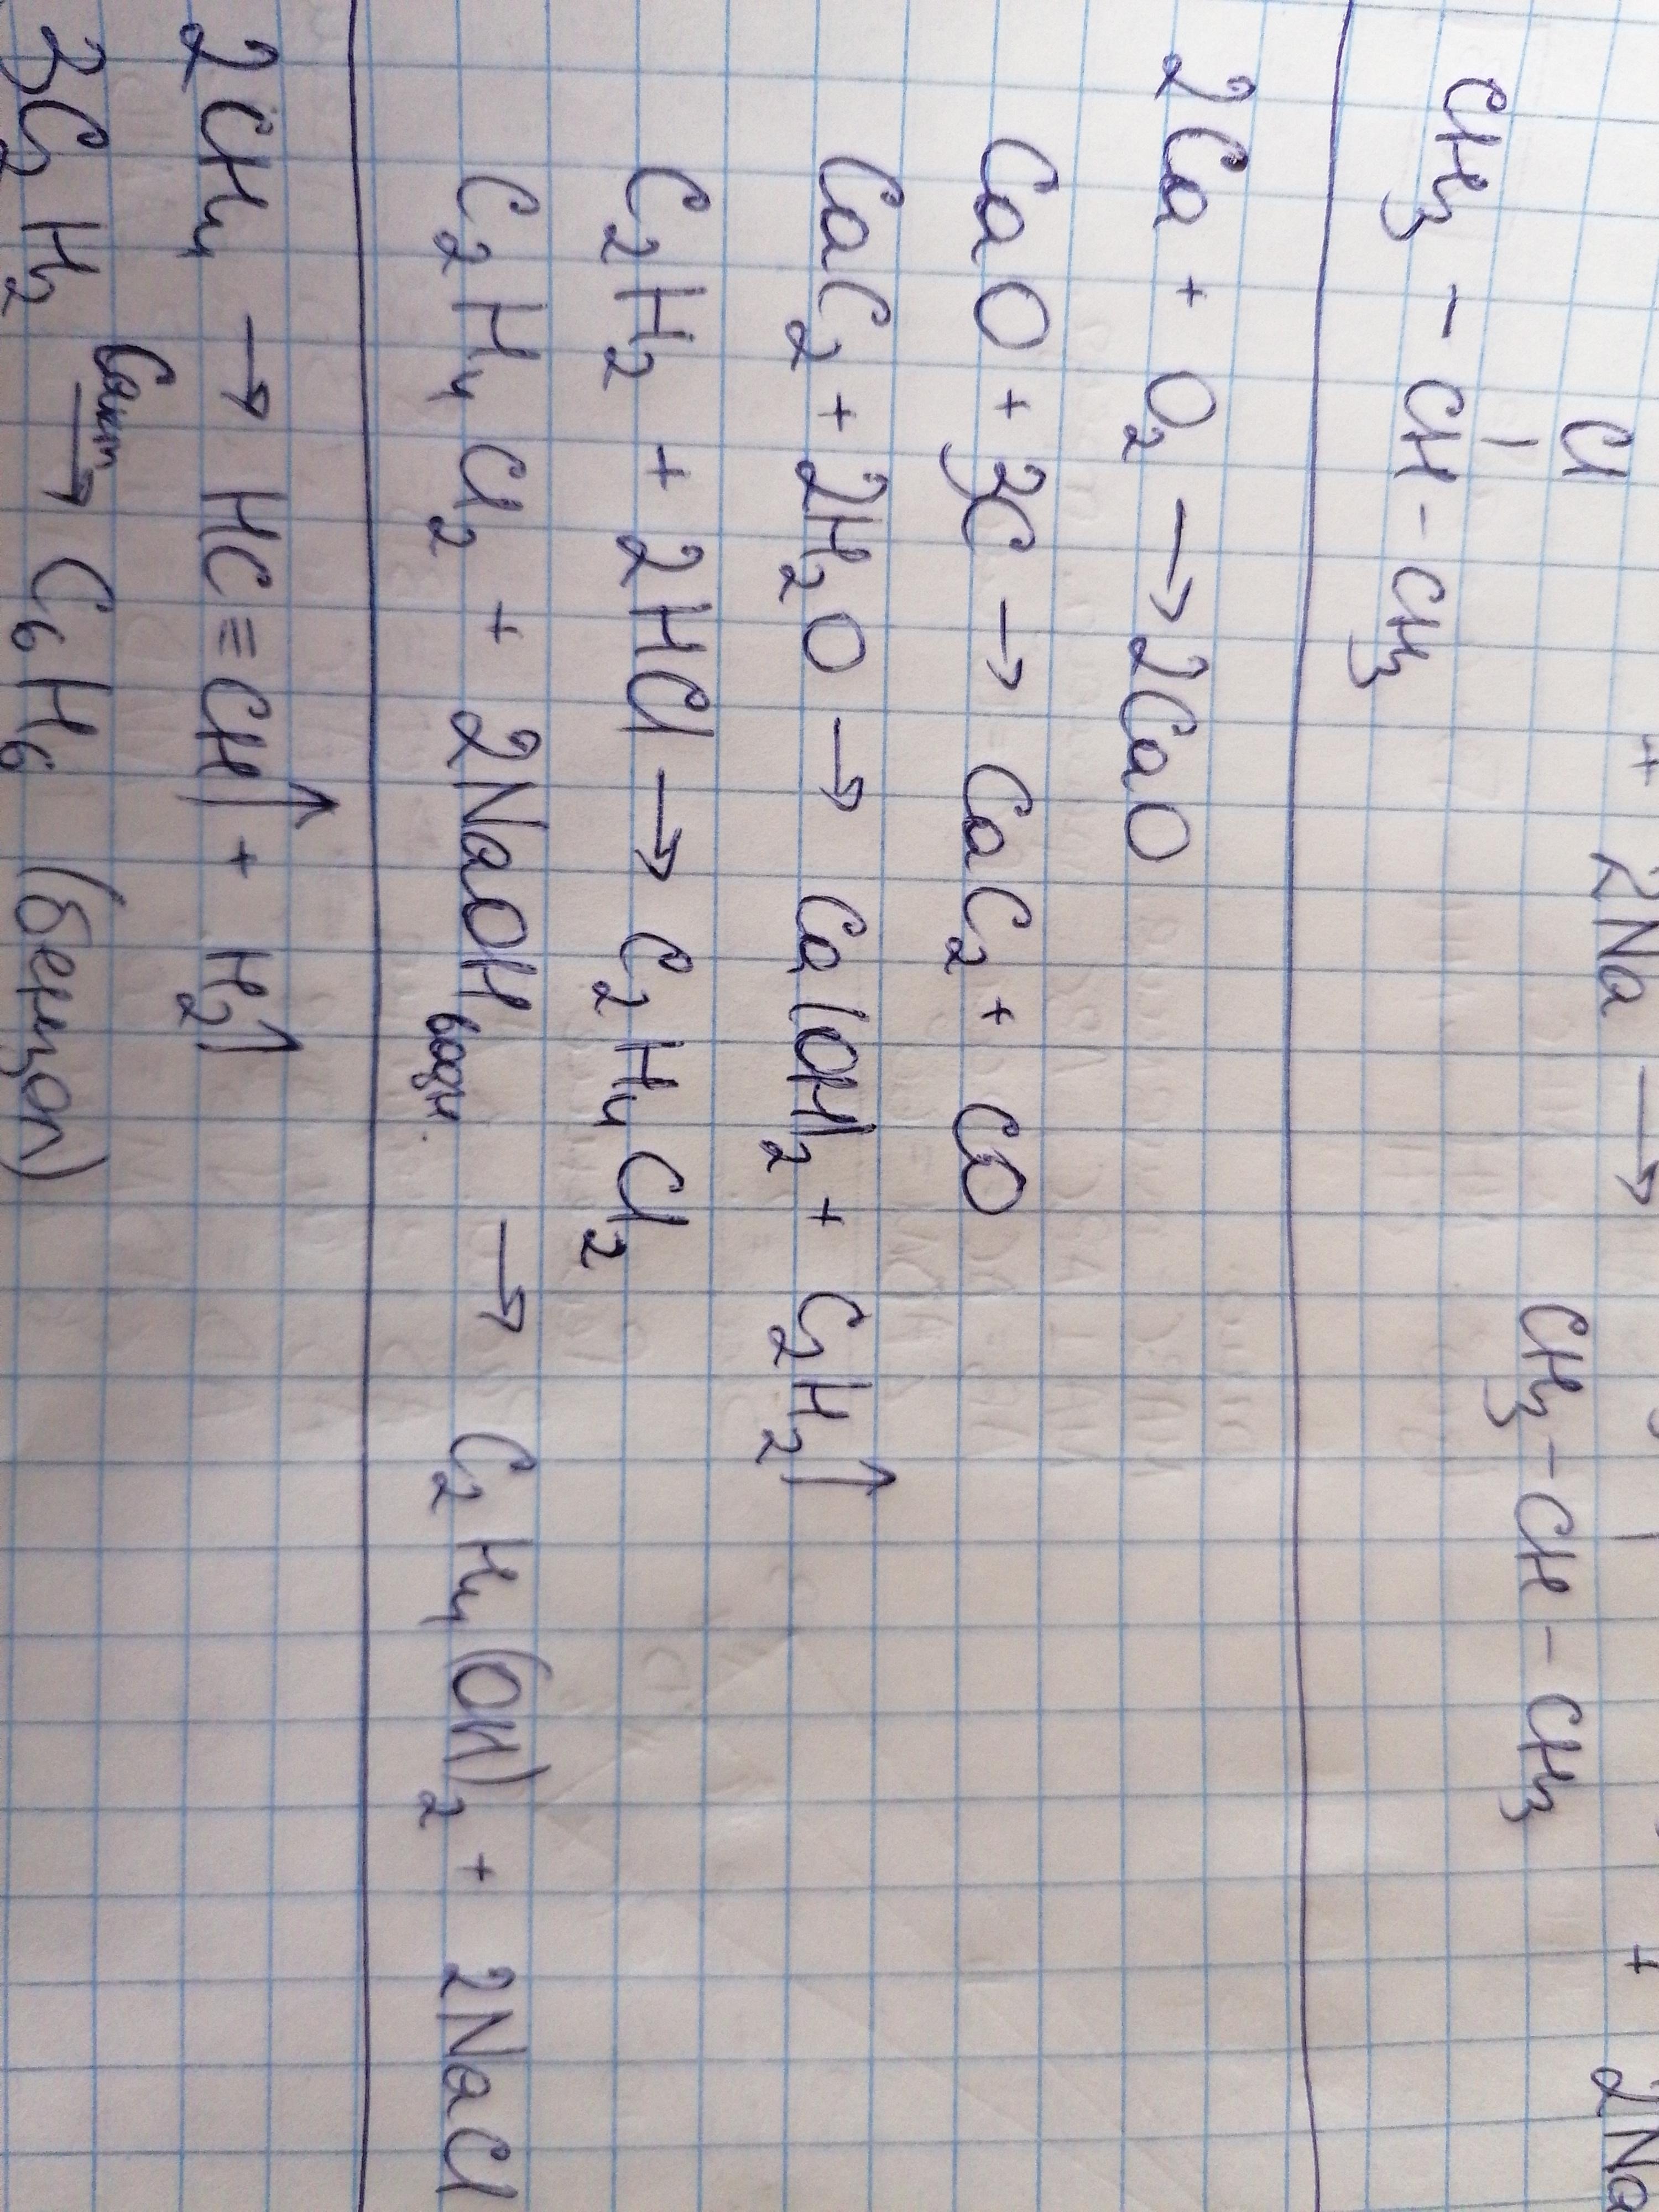 Cl
+ 2Na →
+ 2Na
CH₃ - CH - CH₃
CH₃ - CH - CH₃
2Ca + O₂ → 2CaO
CaO + 3C → CaC₂ + CO
CaC₂ + 2H₂O → Ca(OH)₂ + C₂H₂↑
C₂H₂ + 2HCl → C₂H₄Cl₂
C₂H₄Cl₂ + 2NaOH водн. → C₂H₄(OH)₂ + 2NaCl
2CH₄ → HC≡CH↑ + H₂↑
3C₂H₂ Cакт → C₆H₆ (бензол)